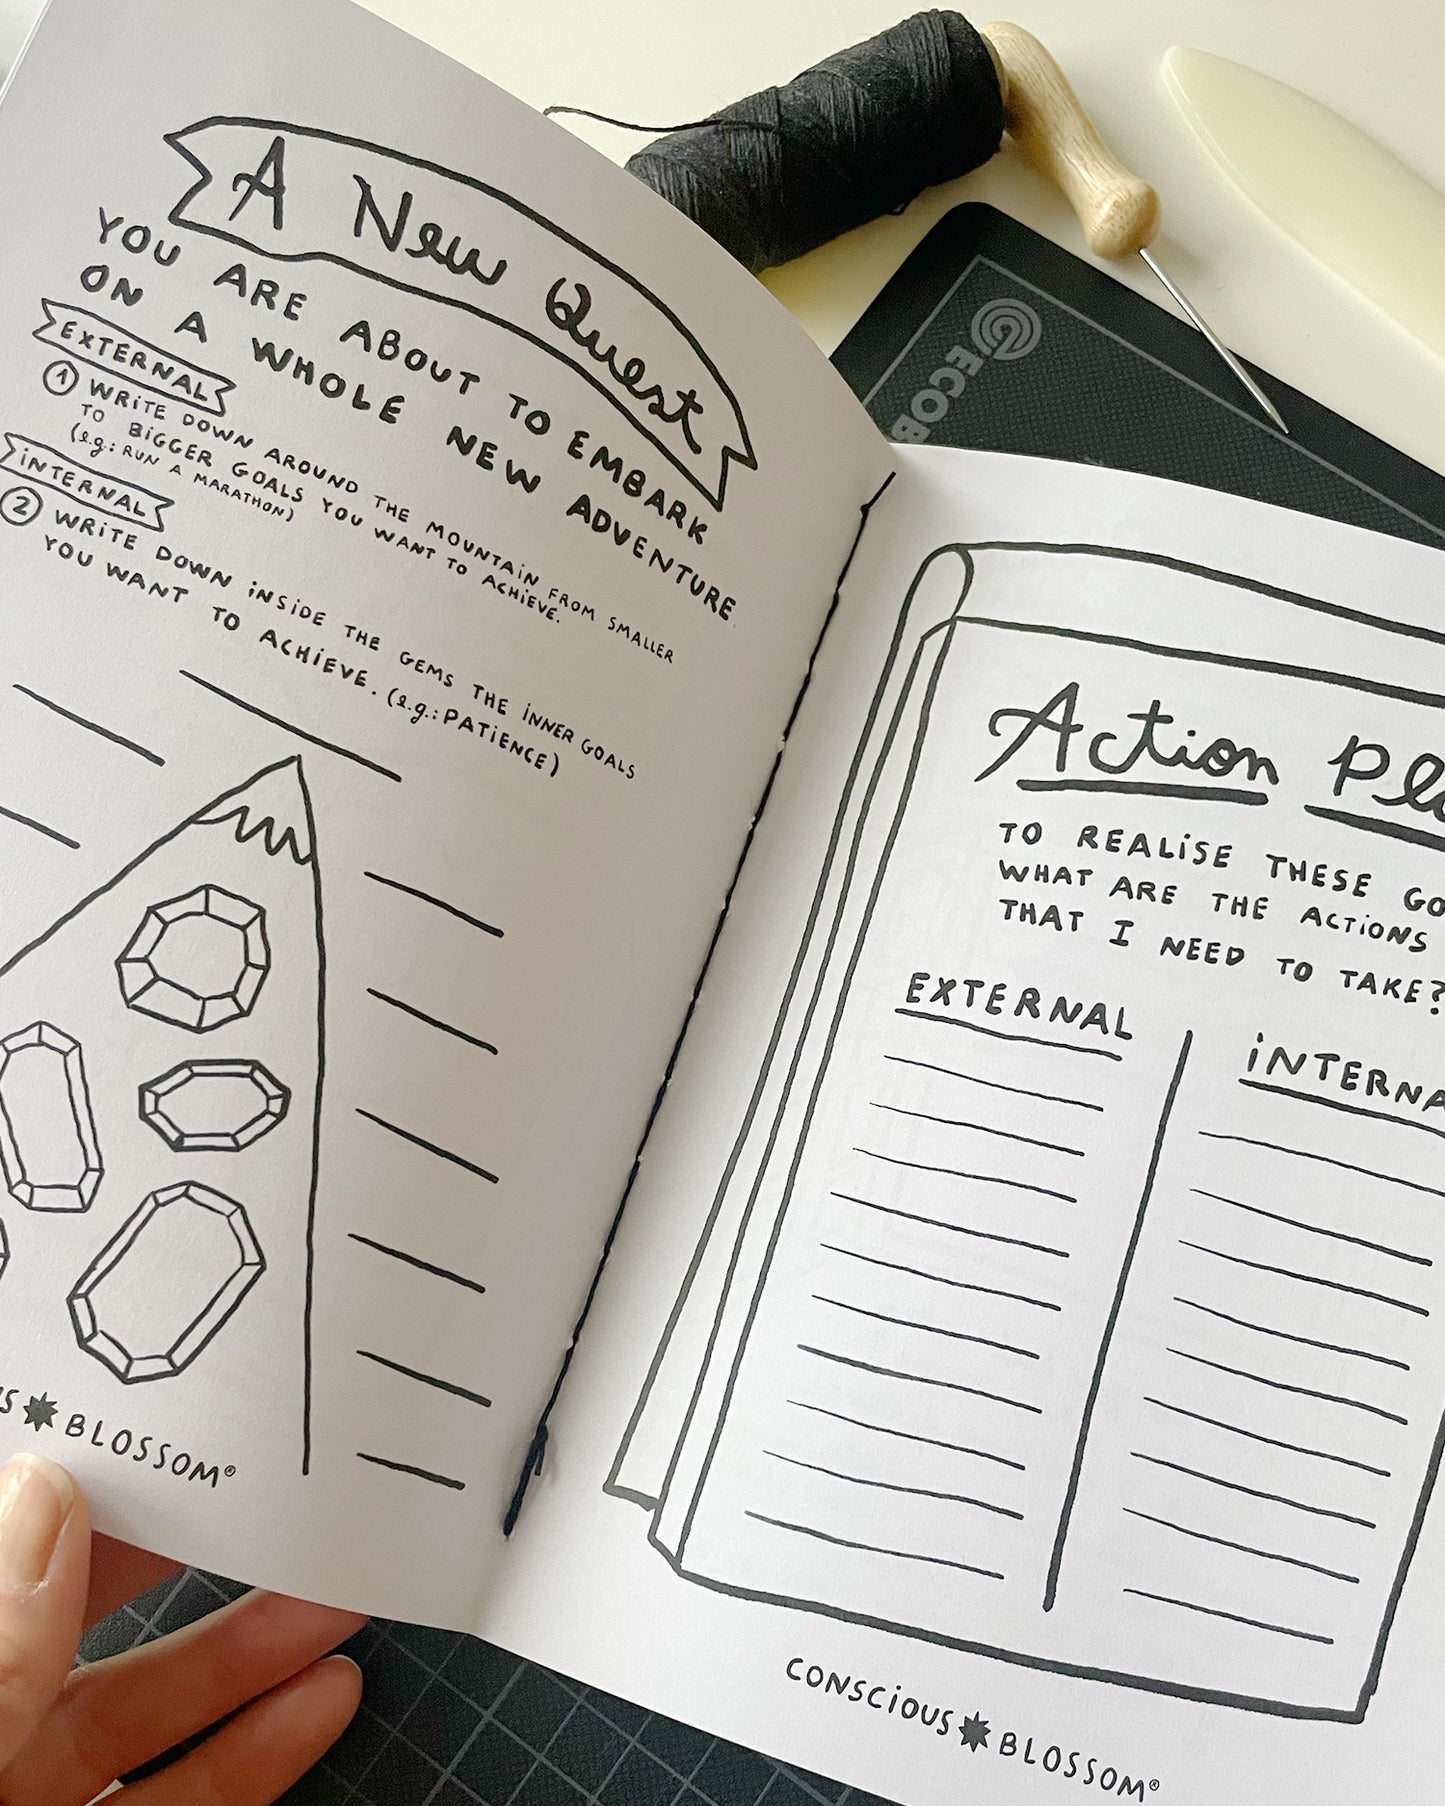 A New Quest
YOU ARE ABOUT TO EMBARK
ON A WHOLE NEW ADVENTURE.
EXTERNAL
1 WRITE DOWN AROUND THE MOUNTAIN FROM SMALLER
TO BIGGER GOALS YOU WANT TO ACHIEVE.
(e.g.: RUN A MARATHON)
INTERNAL
2 WRITE DOWN INSIDE THE GEMS THE INNER GOALS
YOU WANT TO ACHIEVE. (e.g.: PATIENCE)
BLOSSOM®
Action
TO REALISE THESE
WHAT ARE THE ACTIONS
THAT I NEED TO TAKE?
EXTERNAL
CONSCIOUS BLOSSOM®